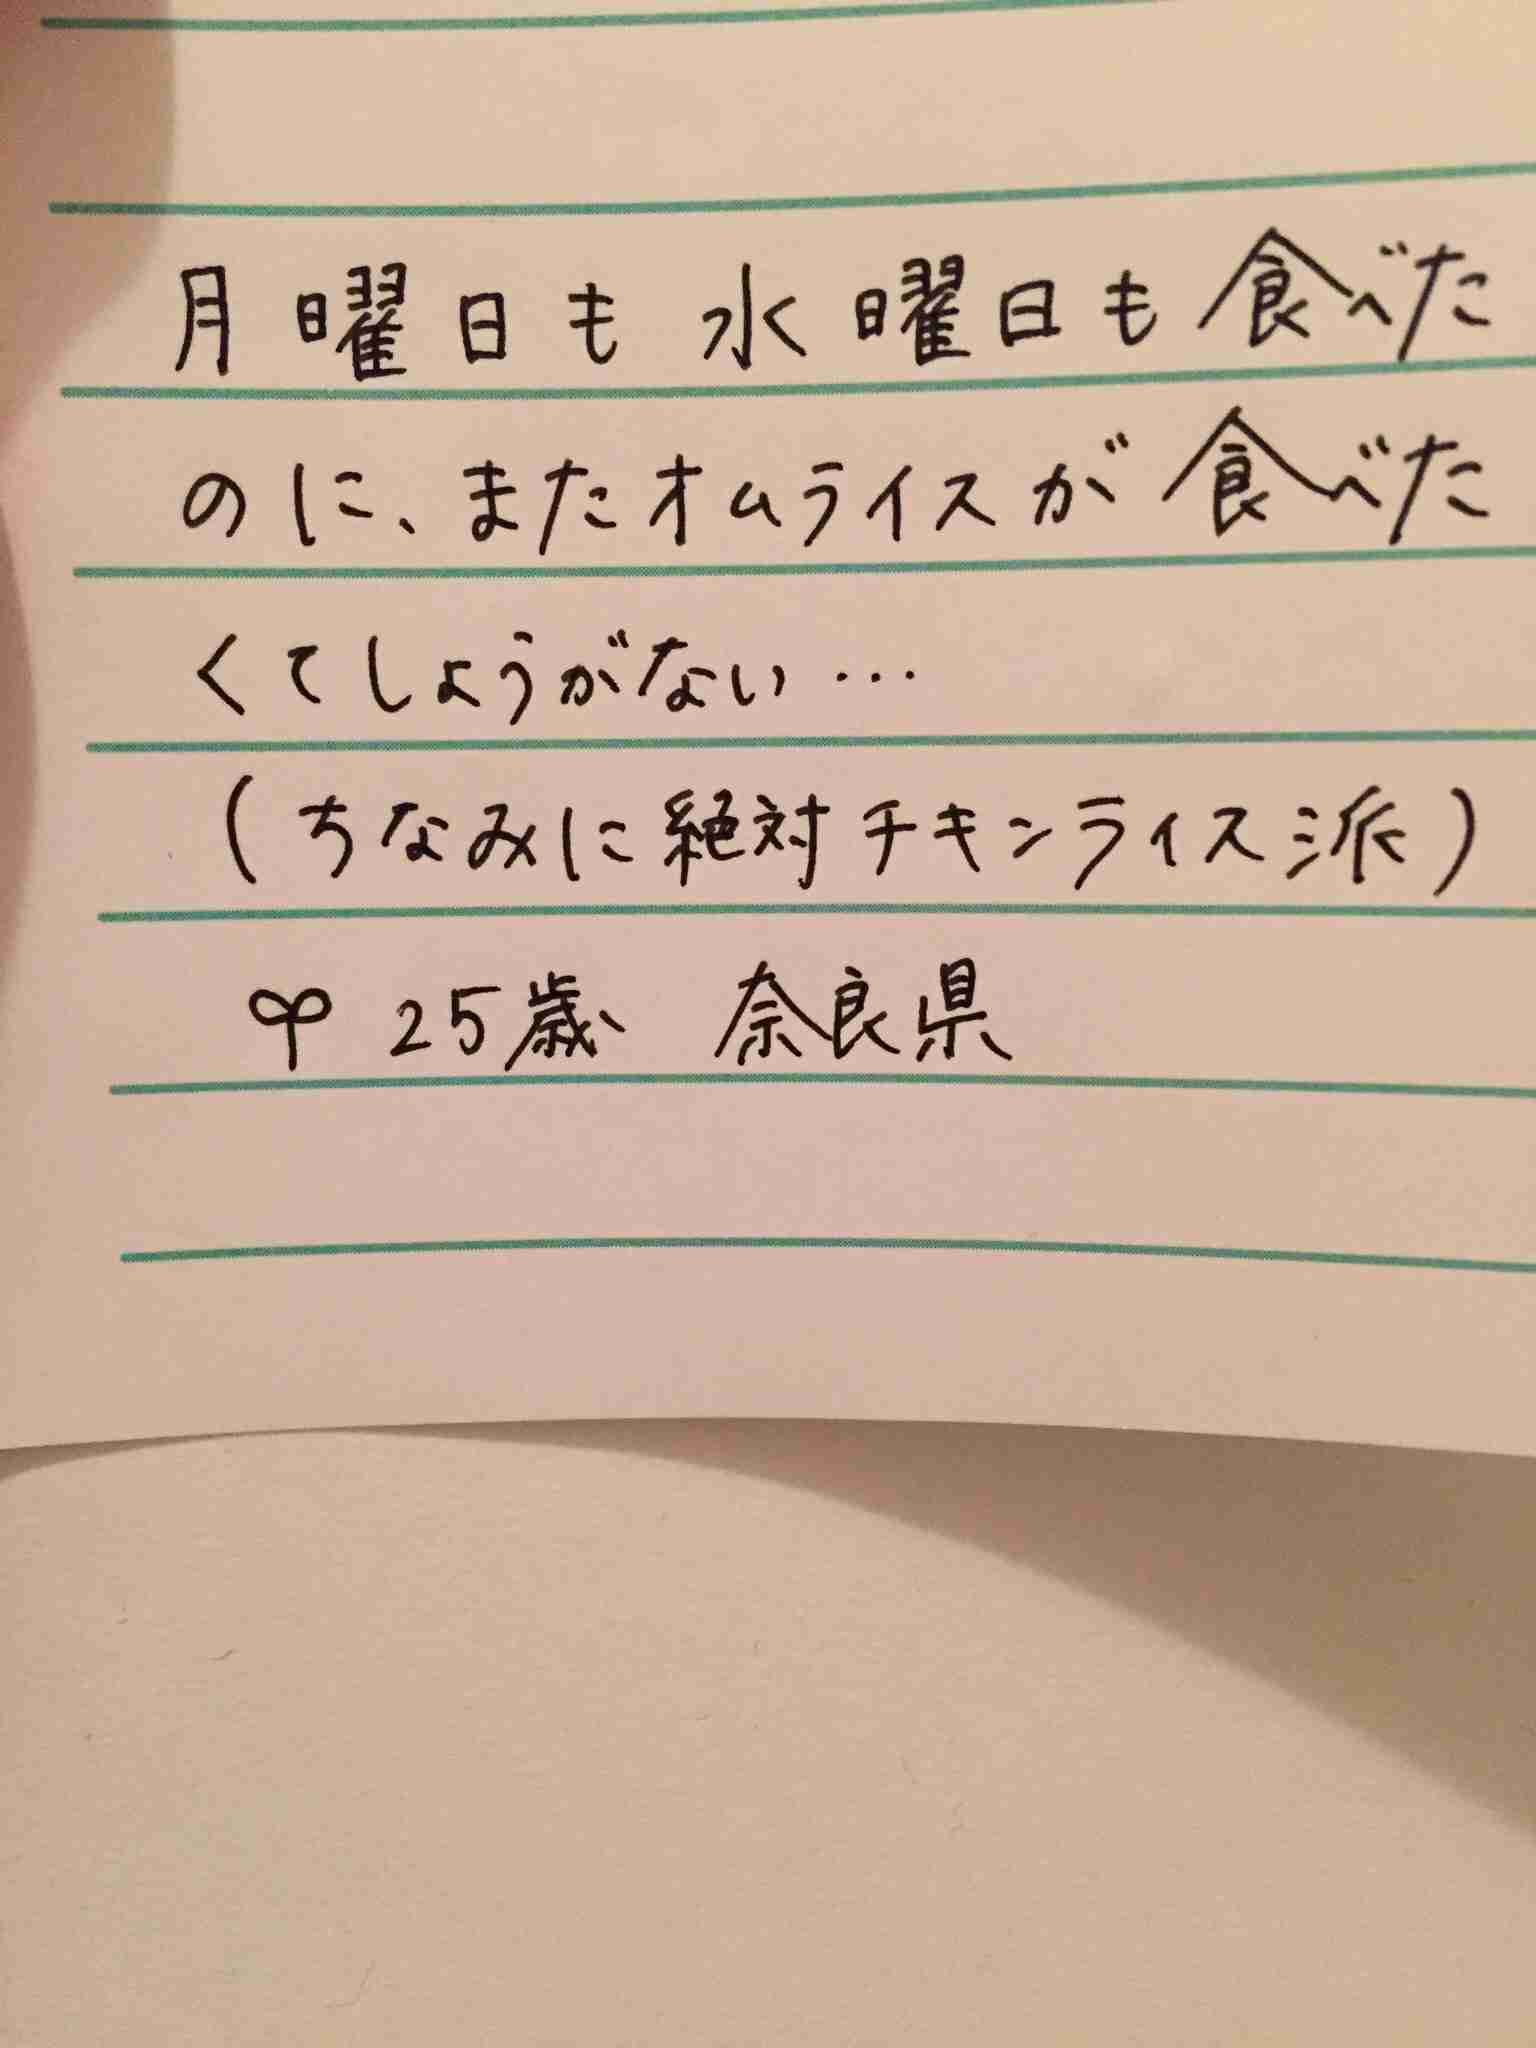 月曜日も水曜日も食べた
のに、またオムライスが食べた
くてしょうがない…
(ちなみに絶対チキンライス派)
25歳 奈良県